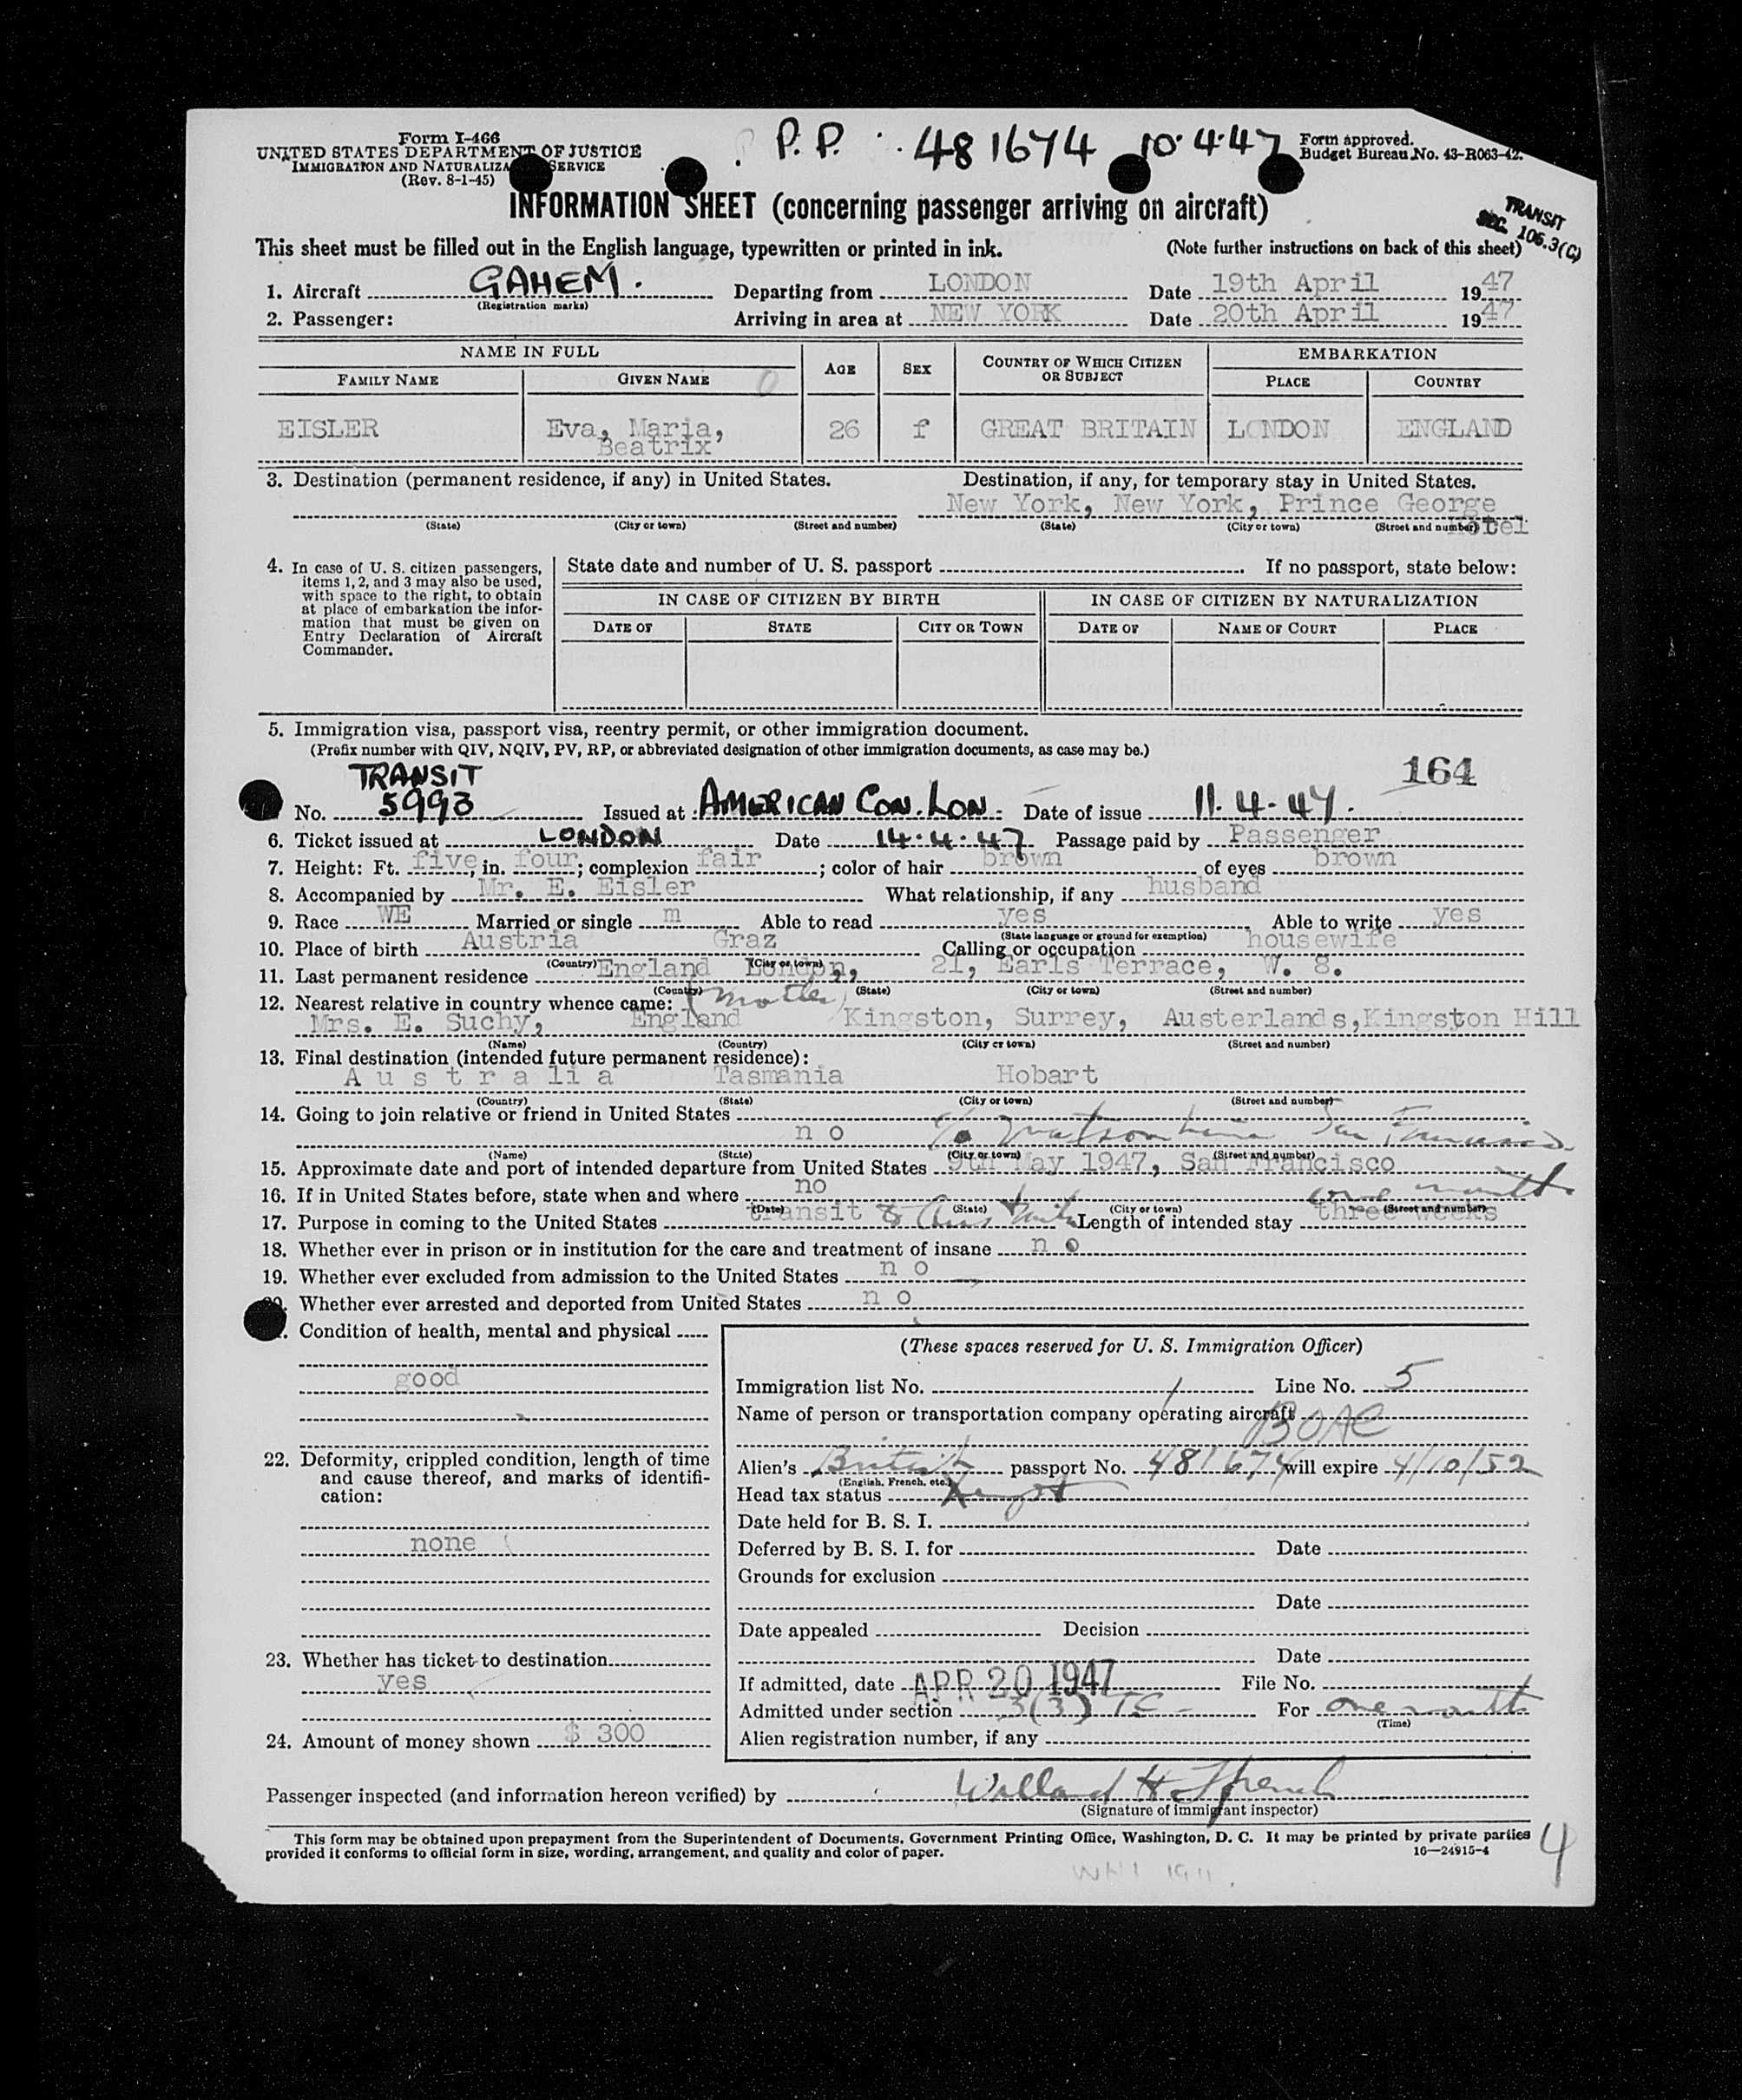 Form I-466
UNITED STATES DEPARTMENT OF JUSTICE
IMMIGRATION AND NATURALIZA SERVICE
(Rev. 8-1-45)
P.P. 481674 10.4.47
Form approved.
Budget Bureau No. 43-R063-42.
INFORMATION SHEET (concerning passenger arriving on aircraft)
TRANSIT
SEC. 106.3(C)
This sheet must be filled out in the English language, typewritten or printed in ink. (Note further instructions on back of this sheet)
1. Aircraft GAHEM. Departing from LONDON Date 19th April 1947
(Registration marks)
2. Passenger: Arriving in area at NEW YORK Date 20th April 1947
NAME IN FULL AGE SEX COUNTRY OF WHICH CITIZEN OR SUBJECT EMBARKATION
FAMILY NAME GIVEN NAME PLACE COUNTRY
EISLER Eva, Maria, 26 f GREAT BRITAIN LONDON ENGLAND
Beatrix
3. Destination (permanent residence, if any) in United States. Destination, if any, for temporary stay in United States.
New York, New York, Prince George
(State) (City or town) (Street and number) (State) (City or town) (Street and number) Hotel
4. In case of U. S. citizen passengers, items 1, 2, and 3 may also be used, with space to the right, to obtain at place of embarkation the information that must be given on Entry Declaration of Aircraft Commander.
State date and number of U. S. passport If no passport, state below:
IN CASE OF CITIZEN BY BIRTH IN CASE OF CITIZEN BY NATURALIZATION
DATE OF STATE CITY OR TOWN DATE OF NAME OF COURT PLACE
5. Immigration visa, passport visa, reentry permit, or other immigration document.
(Prefix number with QIV, NQIV, PV, RP, or abbreviated designation of other immigration documents, as case may be.)
164
TRANSIT
No. 5993 Issued at AMERICAN CON. LON. Date of issue 11.4.47.
6. Ticket issued at LONDON Date 14.4.47 Passage paid by Passenger
7. Height: Ft. five, in. four; complexion fair; color of hair brown of eyes brown
8. Accompanied by Mr. E. Eisler What relationship, if any husband
9. Race WE Married or single m Able to read yes Able to write yes
(State language or ground for exemption)
10. Place of birth Austria Graz Calling or occupation housewife
(Country) (City or town)
11. Last permanent residence England London, 21, Earls Terrace, W. 8.
(Country) (State) (City or town) (Street and number)
12. Nearest relative in country whence came: (mother)
Mrs. E. Suchy, England Kingston, Surrey, Austerlands, Kingston Hill
(Name) (Country) (City or town) (Street and number)
13. Final destination (intended future permanent residence):
Australia Tasmania Hobart
(Country) (State) (City or town) (Street and number)
14. Going to join relative or friend in United States
no c/o Matson Line San Francisco
(Name) (State) (City or town) (Street and number)
15. Approximate date and port of intended departure from United States 9th May 1947, San Francisco
16. If in United States before, state when and where no
(Date) (State) (City or town) (Street and number)
one month
17. Purpose in coming to the United States transit to Length of intended stay three weeks
18. Whether ever in prison or in institution for the care and treatment of insane no
19. Whether ever excluded from admission to the United States no
Whether ever arrested and deported from United States no
Condition of health, mental and physical
good
22. Deformity, crippled condition, length of time and cause thereof, and marks of identification:
none
23. Whether has ticket to destination
yes
24. Amount of money shown $ 300
(These spaces reserved for U. S. Immigration Officer)
Immigration list No. 1 Line No. 5
Name of person or transportation company operating aircraft BOAC
Alien's British passport No. 481674 will expire 4/10/52
(English, French, etc.)
Head tax status
Date held for B. S. I.
Deferred by B. S. I. for Date
Grounds for exclusion
Date
Date appealed Decision
Date
If admitted, date APR 20 1947 File No.
Admitted under section 3(3) TC - For one month
(Time)
Alien registration number, if any
Passenger inspected (and information hereon verified) by Willard H.
(Signature of immigrant inspector)
This form may be obtained upon prepayment from the Superintendent of Documents, Government Printing Office, Washington, D. C. It may be printed by private parties
provided it conforms to official form in size, wording, arrangement, and quality and color of paper. 16—24915-4
4